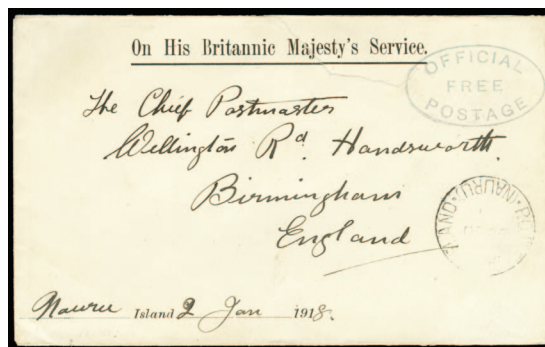 On His Britannic Majesty's Service.
OFFICIAL
FREE
POSTAGE
The Chief Postmaster
Wellington Rd. Handsworth.
Birmingham
England
NAURU
Nauru Island 2 Jan 1918.